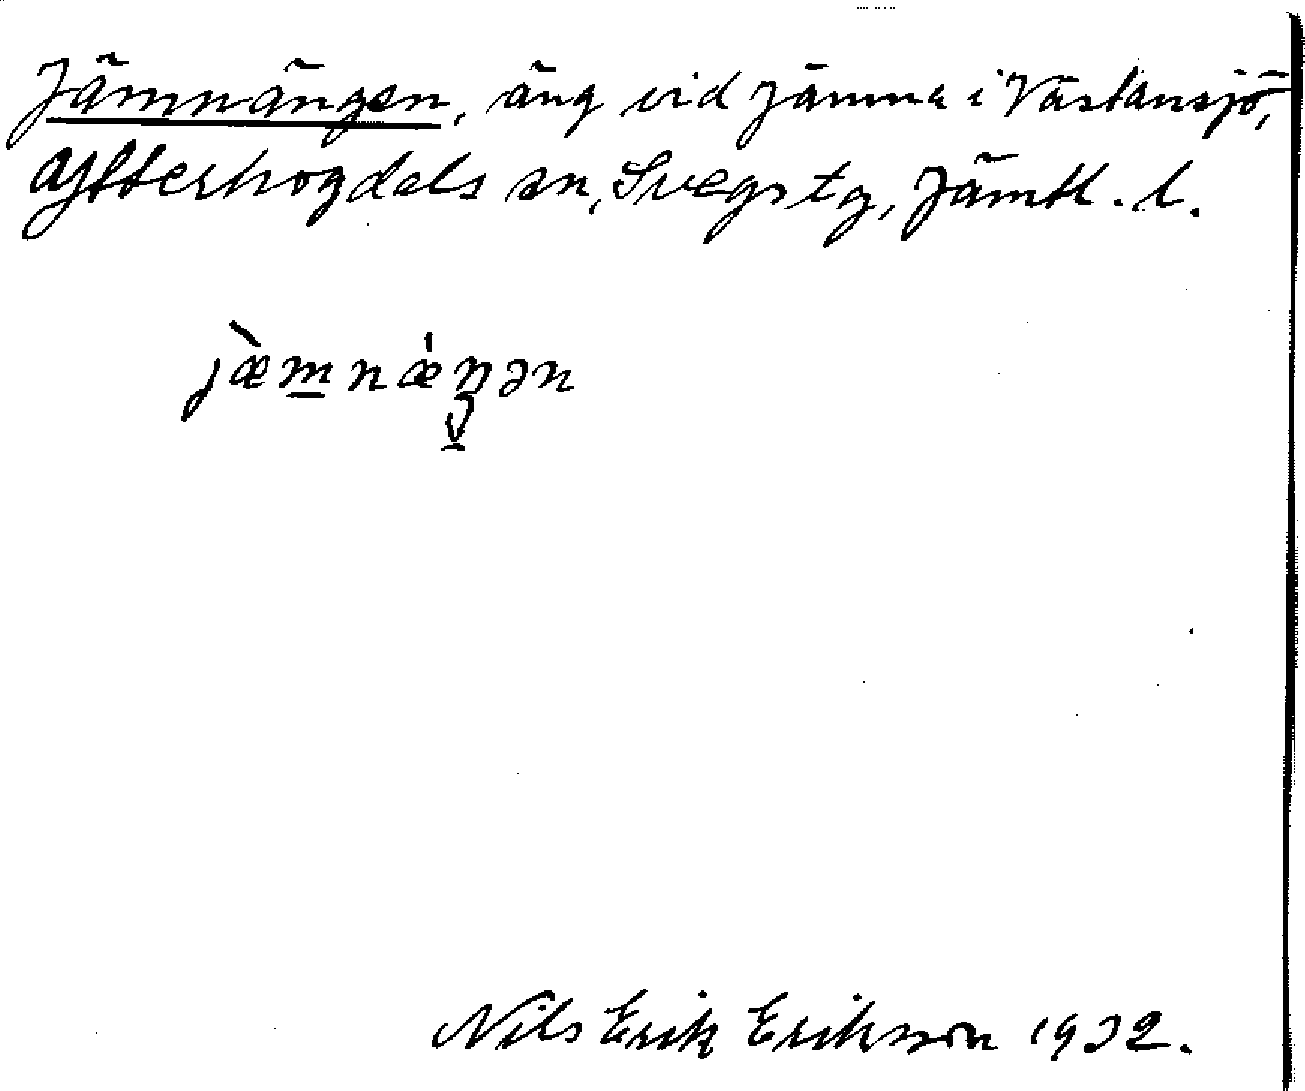 Jämnängen, äng vid Jämna i Västansjö,
Ytterhogdals sn, Svegs tg, Jämtl. l.
jæ̀m̲næ̍ŋən
Nils Erik Erikson 1932.